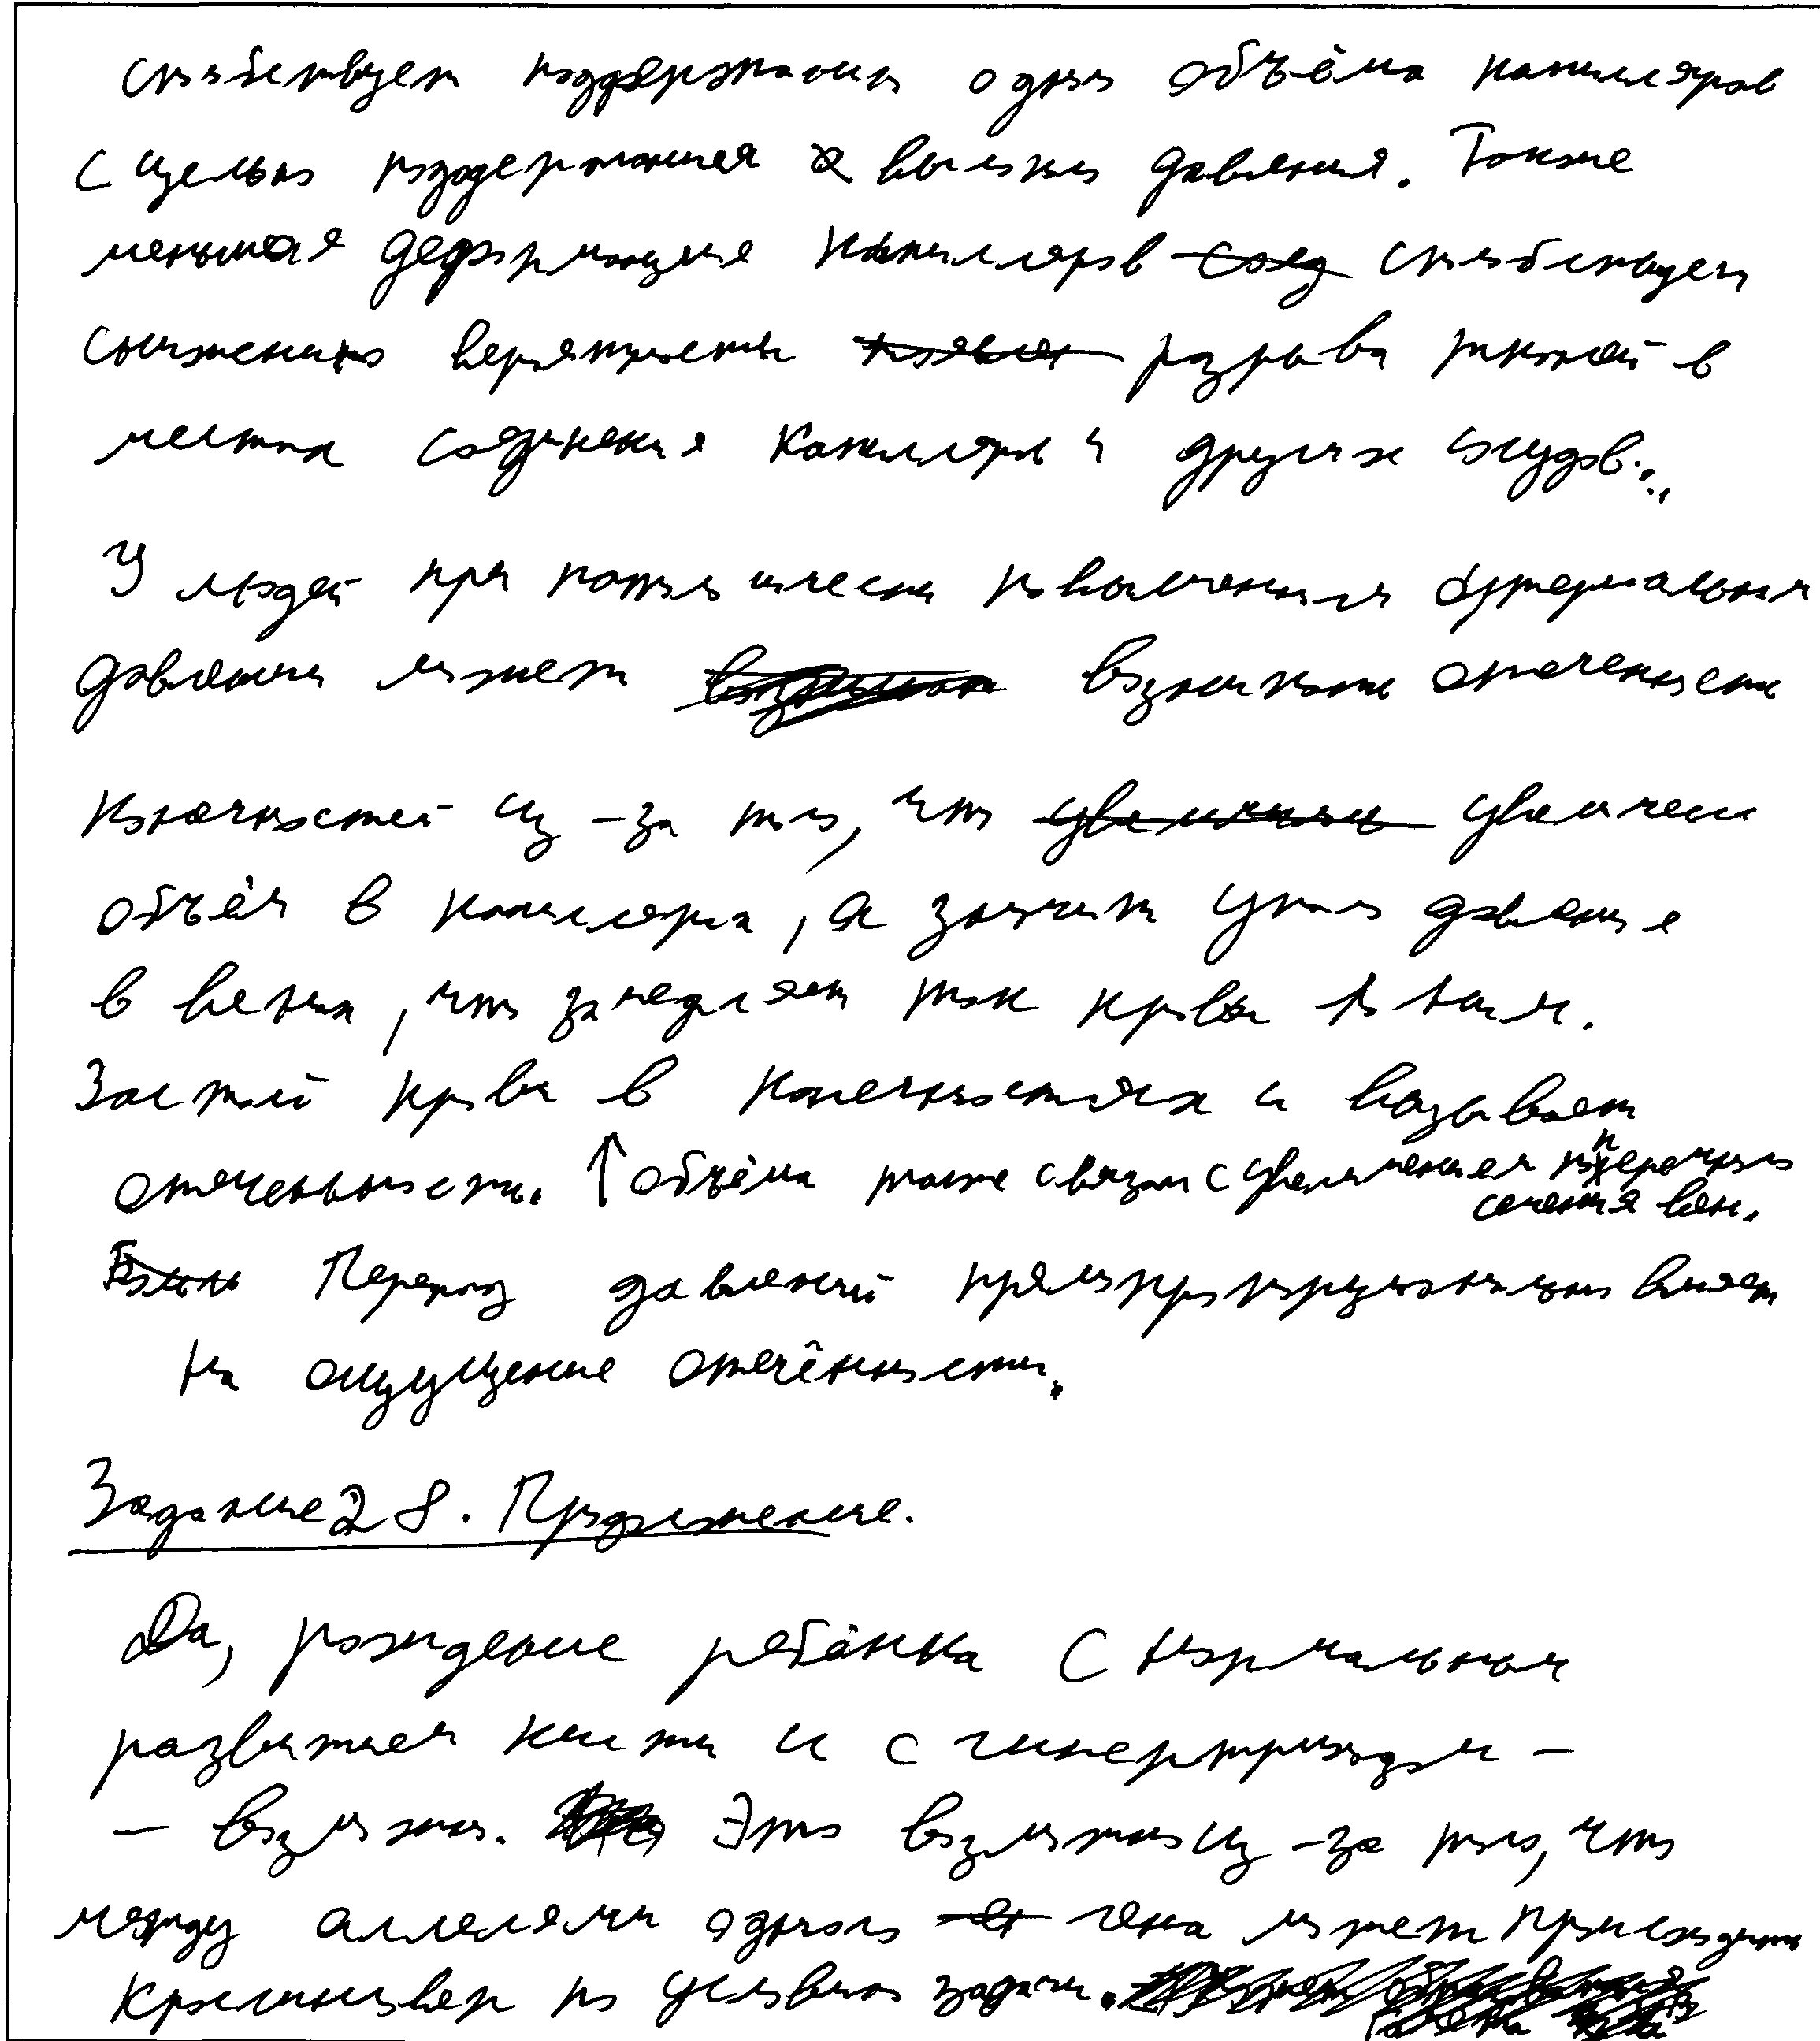 способствует поддержанию одного объёма капилляров
с целью поддержания высокого давления. Также
меньшая деформация капилляров способствует
снижению вероятности разрыва тканей в
местах соединения капилляров и других сосудов.
У людей при повышении артериального
давления может возникать отечность
конечностей из-за того, что увеличен
объём в капиллярах, а значит упало давление
в венах, что замедляет ток крови по ним.
Застой крови в конечностях и вызывает
отеченность. ↑ объёма также связан с увеличением поперечного
сечения вен.
Перепад давлений прямо пропорционально влияет
на ощущение отечённости.
Задание 28. Продолжение.
Да, рождение ребёнка с нормальным
развитием кисти и с гипертрихозом –
– возможно. Это возможно из-за того, что
между аллелями одного гена может происходить
кроссинговер по условию задачи.